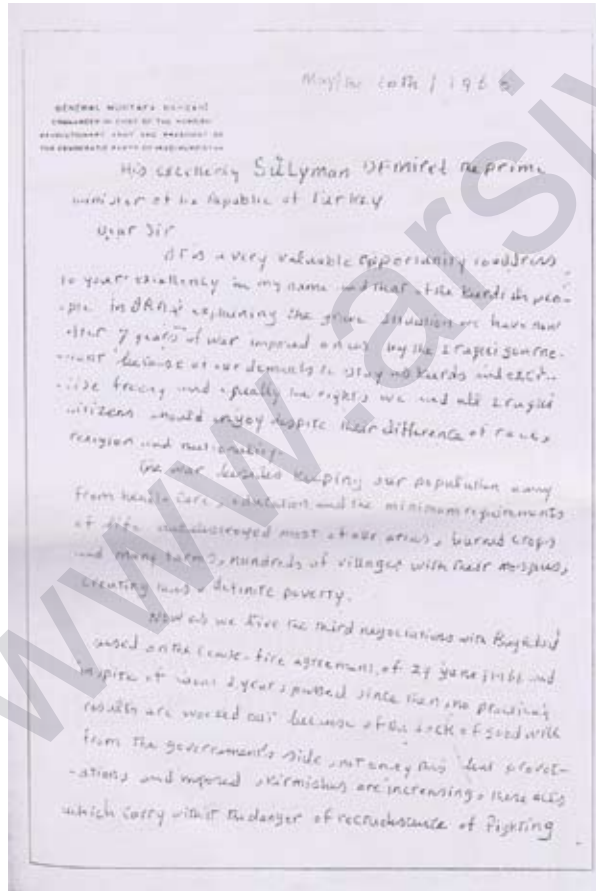 May/the 20th / 196
GENERAL MUSTAFA BARZANI
COMMANDER IN CHIEF OF THE KURDISH
REVOLUTIONARY ARMY AND PRESIDENT OF
THE DEMOCRATIC PARTY OF
His excellency SÜLyman DEmirel the prime
minister of the Republic of Turkey
Dear Sir
It is a very valuable opportunity to address
to your excellency in my name and that of the Kurdish peo-
-ple in IRAQ explaining the grave situation we have now
after 7 years of war imposed on us by the Iraqi
because of our demands to stay as Kurds and exer-
-cise freely and equally the rights we and all
citizens should enjoy despite their difference of race,
religion and nationality.
The war besides keeping our population away
from health care, education and the minimum requirements
of life destroyed most of our areas, burned crops
and many farms, hundreds of villages with their mosques,
creating definite poverty.
Now as we live the third negociations with Baghdad
based on the cease-fire agreement of 29 June and
inspite of 2 years passed since then, no practical
results are worked out because of the lack of good will
from the government's side, not only this but provoc-
-ations and imposed skirmishes are increasing, these acts
which carry with it the danger of of fighting
www.arsiv